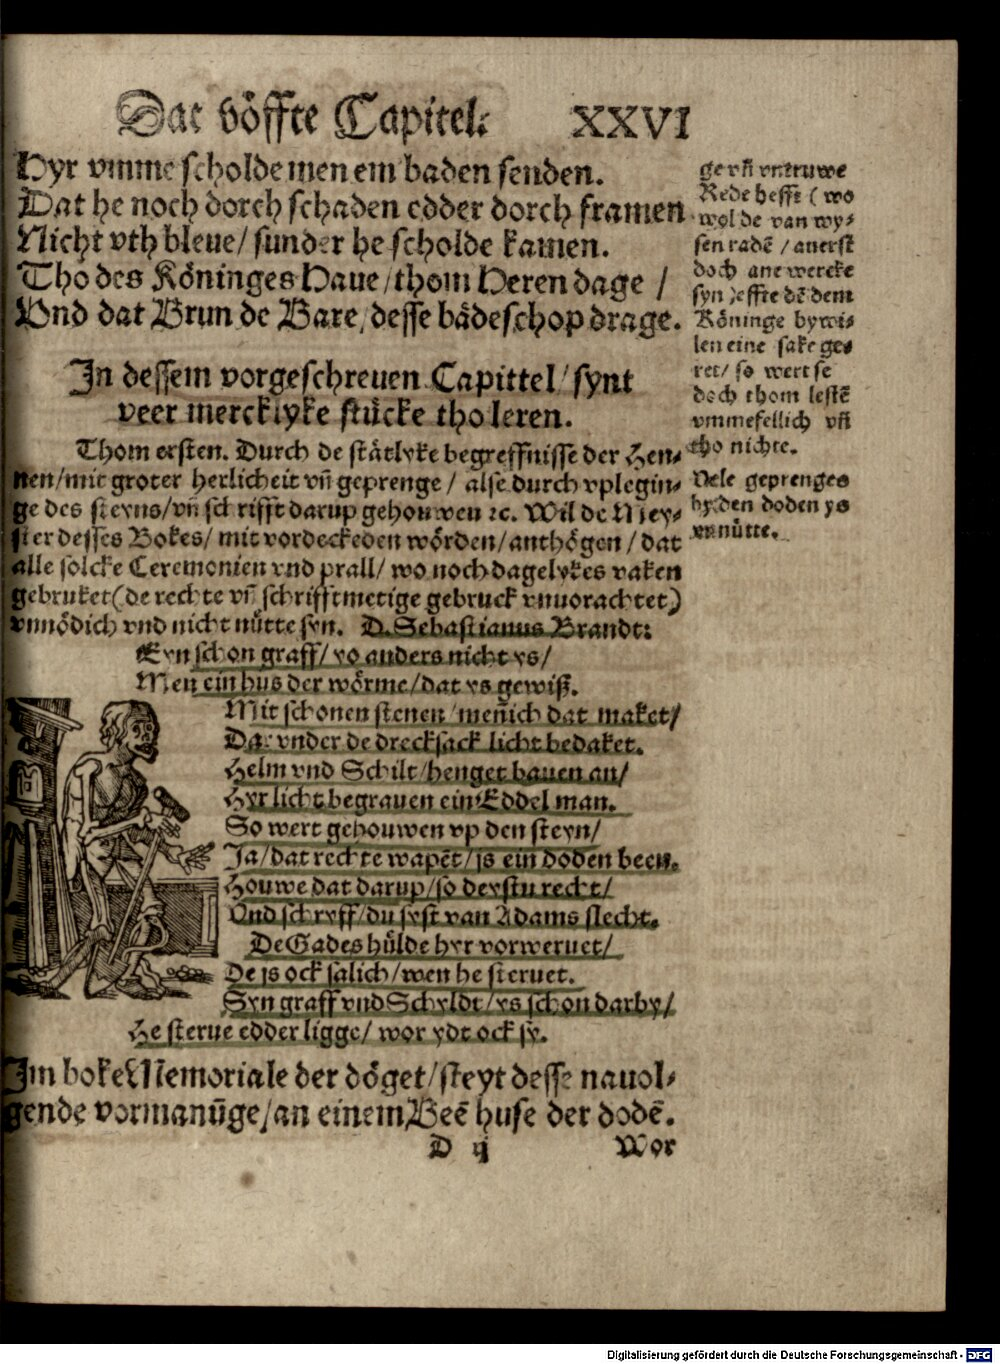 Dat vöffte Capitel. XXVI
Hyr vmme scholde men em baden senden.
Dat he noch dorch schaden edder dorch framen
Nicht vth bleue/ sunder he scholde kamen.
Tho des Köninges Haue/thom Heren dage /
Vnd dat Brun de Bare/desse bådeschop drage.
In dessem vorgeschreuen Capittel/ synt
veer mercklyke stücke tho leren.
Thom ersten. Durch de ståtlyke begreffnisse der Hen-
nen/mit groter herlicheit vñ geprenge / alse durch vplegin-
ge des steyns/vñ schrifft darup gehouwen ꝛc. Wil de Mey-
ster desses Bokes/ mit vordeckeden wörden/anthögen / dat
alle solcke Ceremonien vnd prall/ wo noch dagelykes vaken
gebruket(de rechte vñ schrifftmetige gebruck vnuorachtet)
vnnödich vnd nicht nütte syn. D. Sebastianus Brandt:
Eyn schon graff/ yo anders nicht ys/
Men ein hus der wörme/dat ys gewiß.
Mit schonen stenen/ mennich dat maket/
Dar vnder de drecksack licht bedaket.
Helm vnd Schilt/henget bauen an/
Hyr licht begrauen ein Eddel man.
So wert gehouwen vp den steyn/
Ja/dat rechte wapēt/is ein doden been.
Houwe dat darup/so deystu recht/
Vnd schryff/du syst van Adams slecht.
De Gades hülde hyr vorweruet/
De is ock salich/wen he steruet.
Syn graff vnd Schyldt/ys schon darby/
He sterue edder ligge/ wor ydt ock sy.
Im boke Memoriale der döget/steyt desse nauol-
gende vormanūge/an einem Beē huse der dodē.
D ij Wor
ge vñ vntruwe
Rede hefft ( wo
wol de van wy-
sen radē / anerst
doch ane wercke
syn )effte dē dem
Köninge bywi-
len eine sake ge-
ret/ so wert se
doch thom lestē
vmmefellich vñ
tho nichte.
Vele geprenges
by den doden ys
vnnütte.
Digitalisierung gefördert durch die Deutsche Forschungsgemeinschaft - DFG